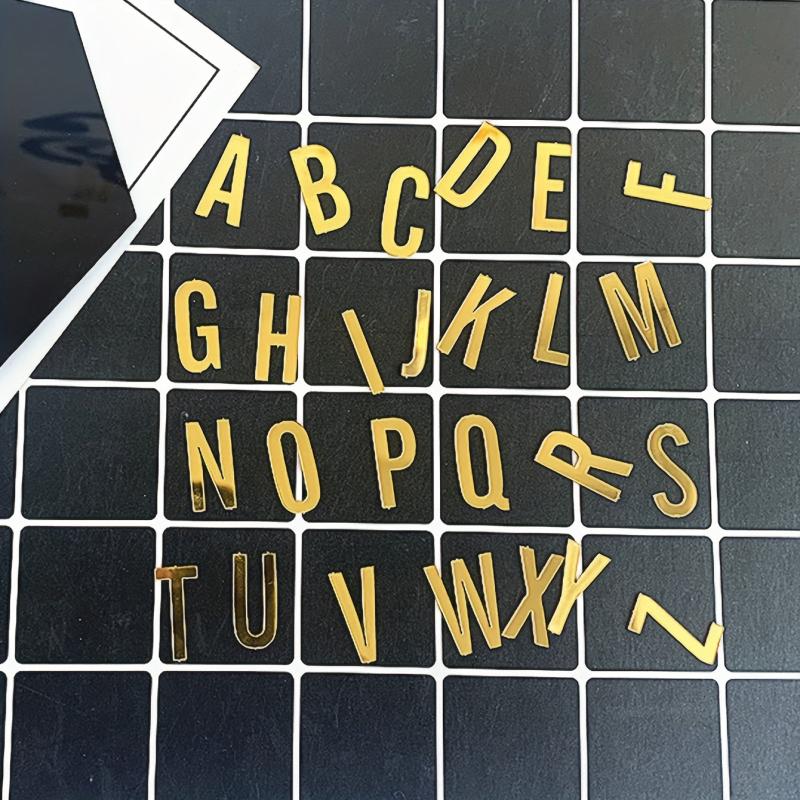 ABCDEF
GHIJKLM
NOPQRS
TUVWXYZ